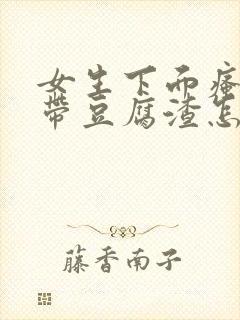 女生下面瘙
带豆腐渣怎
藤香南子